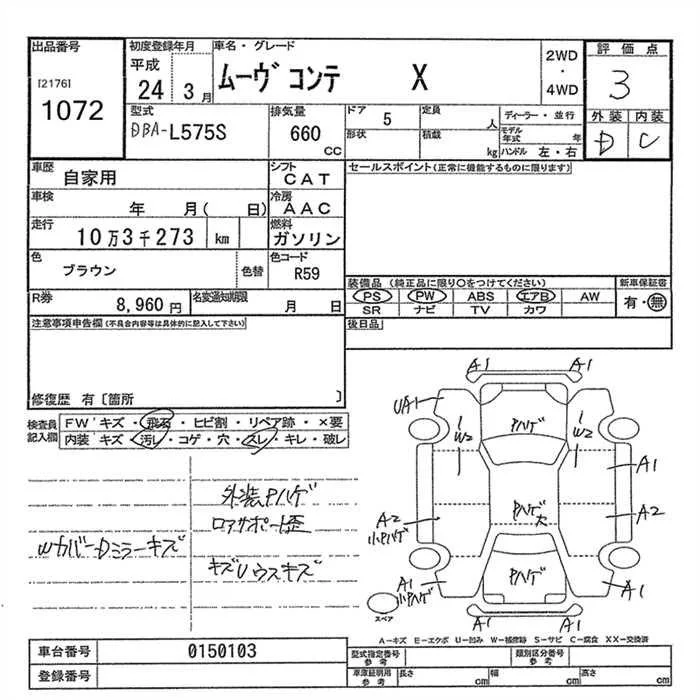 出品番号
[2176]
1072
初度登録年月
平成
24 3月
車名・グレード
ムーヴ コンテ X
2WD
・
4WD
評価点
3
外装 内装
D C
型式
DBA-L575S
排気量
660
CC
ドア
5
形状
定員
人
積載
kg
ディーラー・並行
モデル
年式 年
ハンドル 左・右
車歴
自家用
シフト
CAT
車検
年 月( 日)
冷房
AAC
走行
10万3千273 km
燃料
ガソリン
色
ブラウン
色替
色コード
R59
R券
8,960 円
名変通知期限
月 日
セールスポイント(正常に機能するものに限ります)
装備品(純正品に限り○をつけてください)
新車保証書
PS PW ABS エアB AW
SR ナビ TV カワ
有・無
後日品
注意事項申告欄(不具合内容等は具体的に記入して下さい)
修復歴 有〔箇所 〕
検査員
記入欄
FW キズ・飛石・ヒビ割・リペア跡・×要
内装 キズ・汚レ・コゲ・穴・スレ・キレ・破レ
外装Pハゲ
ロアサポート歪
WカバーDミラーキズ
キズUウスキズ
A1 A1
UA1
Pハゲ
W2 W2
A1
Pハゲ
大
A2
A2
小Pハゲ
Pハゲ
A1
小Pハゲ
A1
A1 A1
スペア
A-キズ E-エクボ U-凹み W-補修跡 S-サビ C-腐食 XX-交換済
車台番号
0150103
登録番号
型式指定番号
参考
類別区分番号
参考
車庫証明用
参考
長さ cm 幅 cm 高さ cm